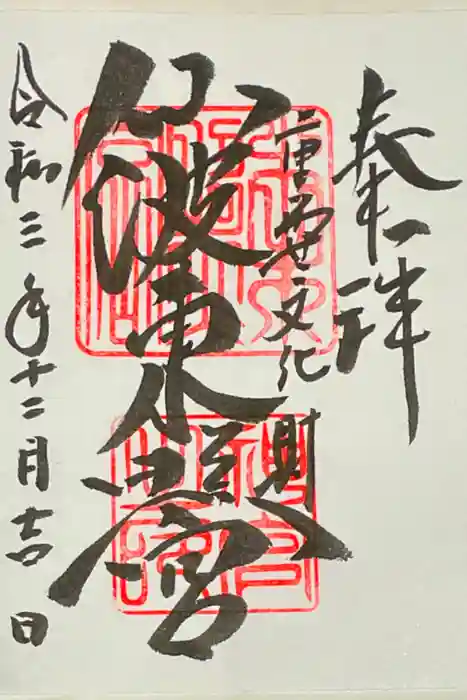 奉拝
重要文化財
仙波東照宮
令和三年十二月吉日